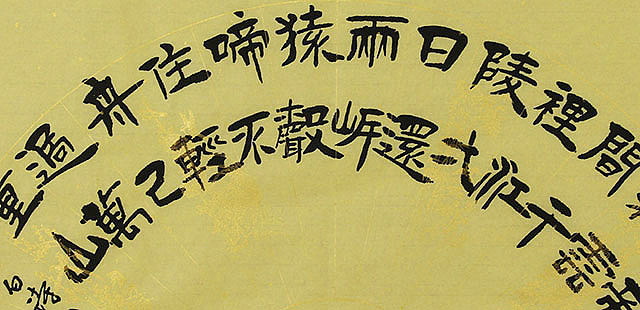 雲
間千
裡江
陵弌
日還
兩岸
猿聲
啼不
住輕
舟已
過萬
重山
白